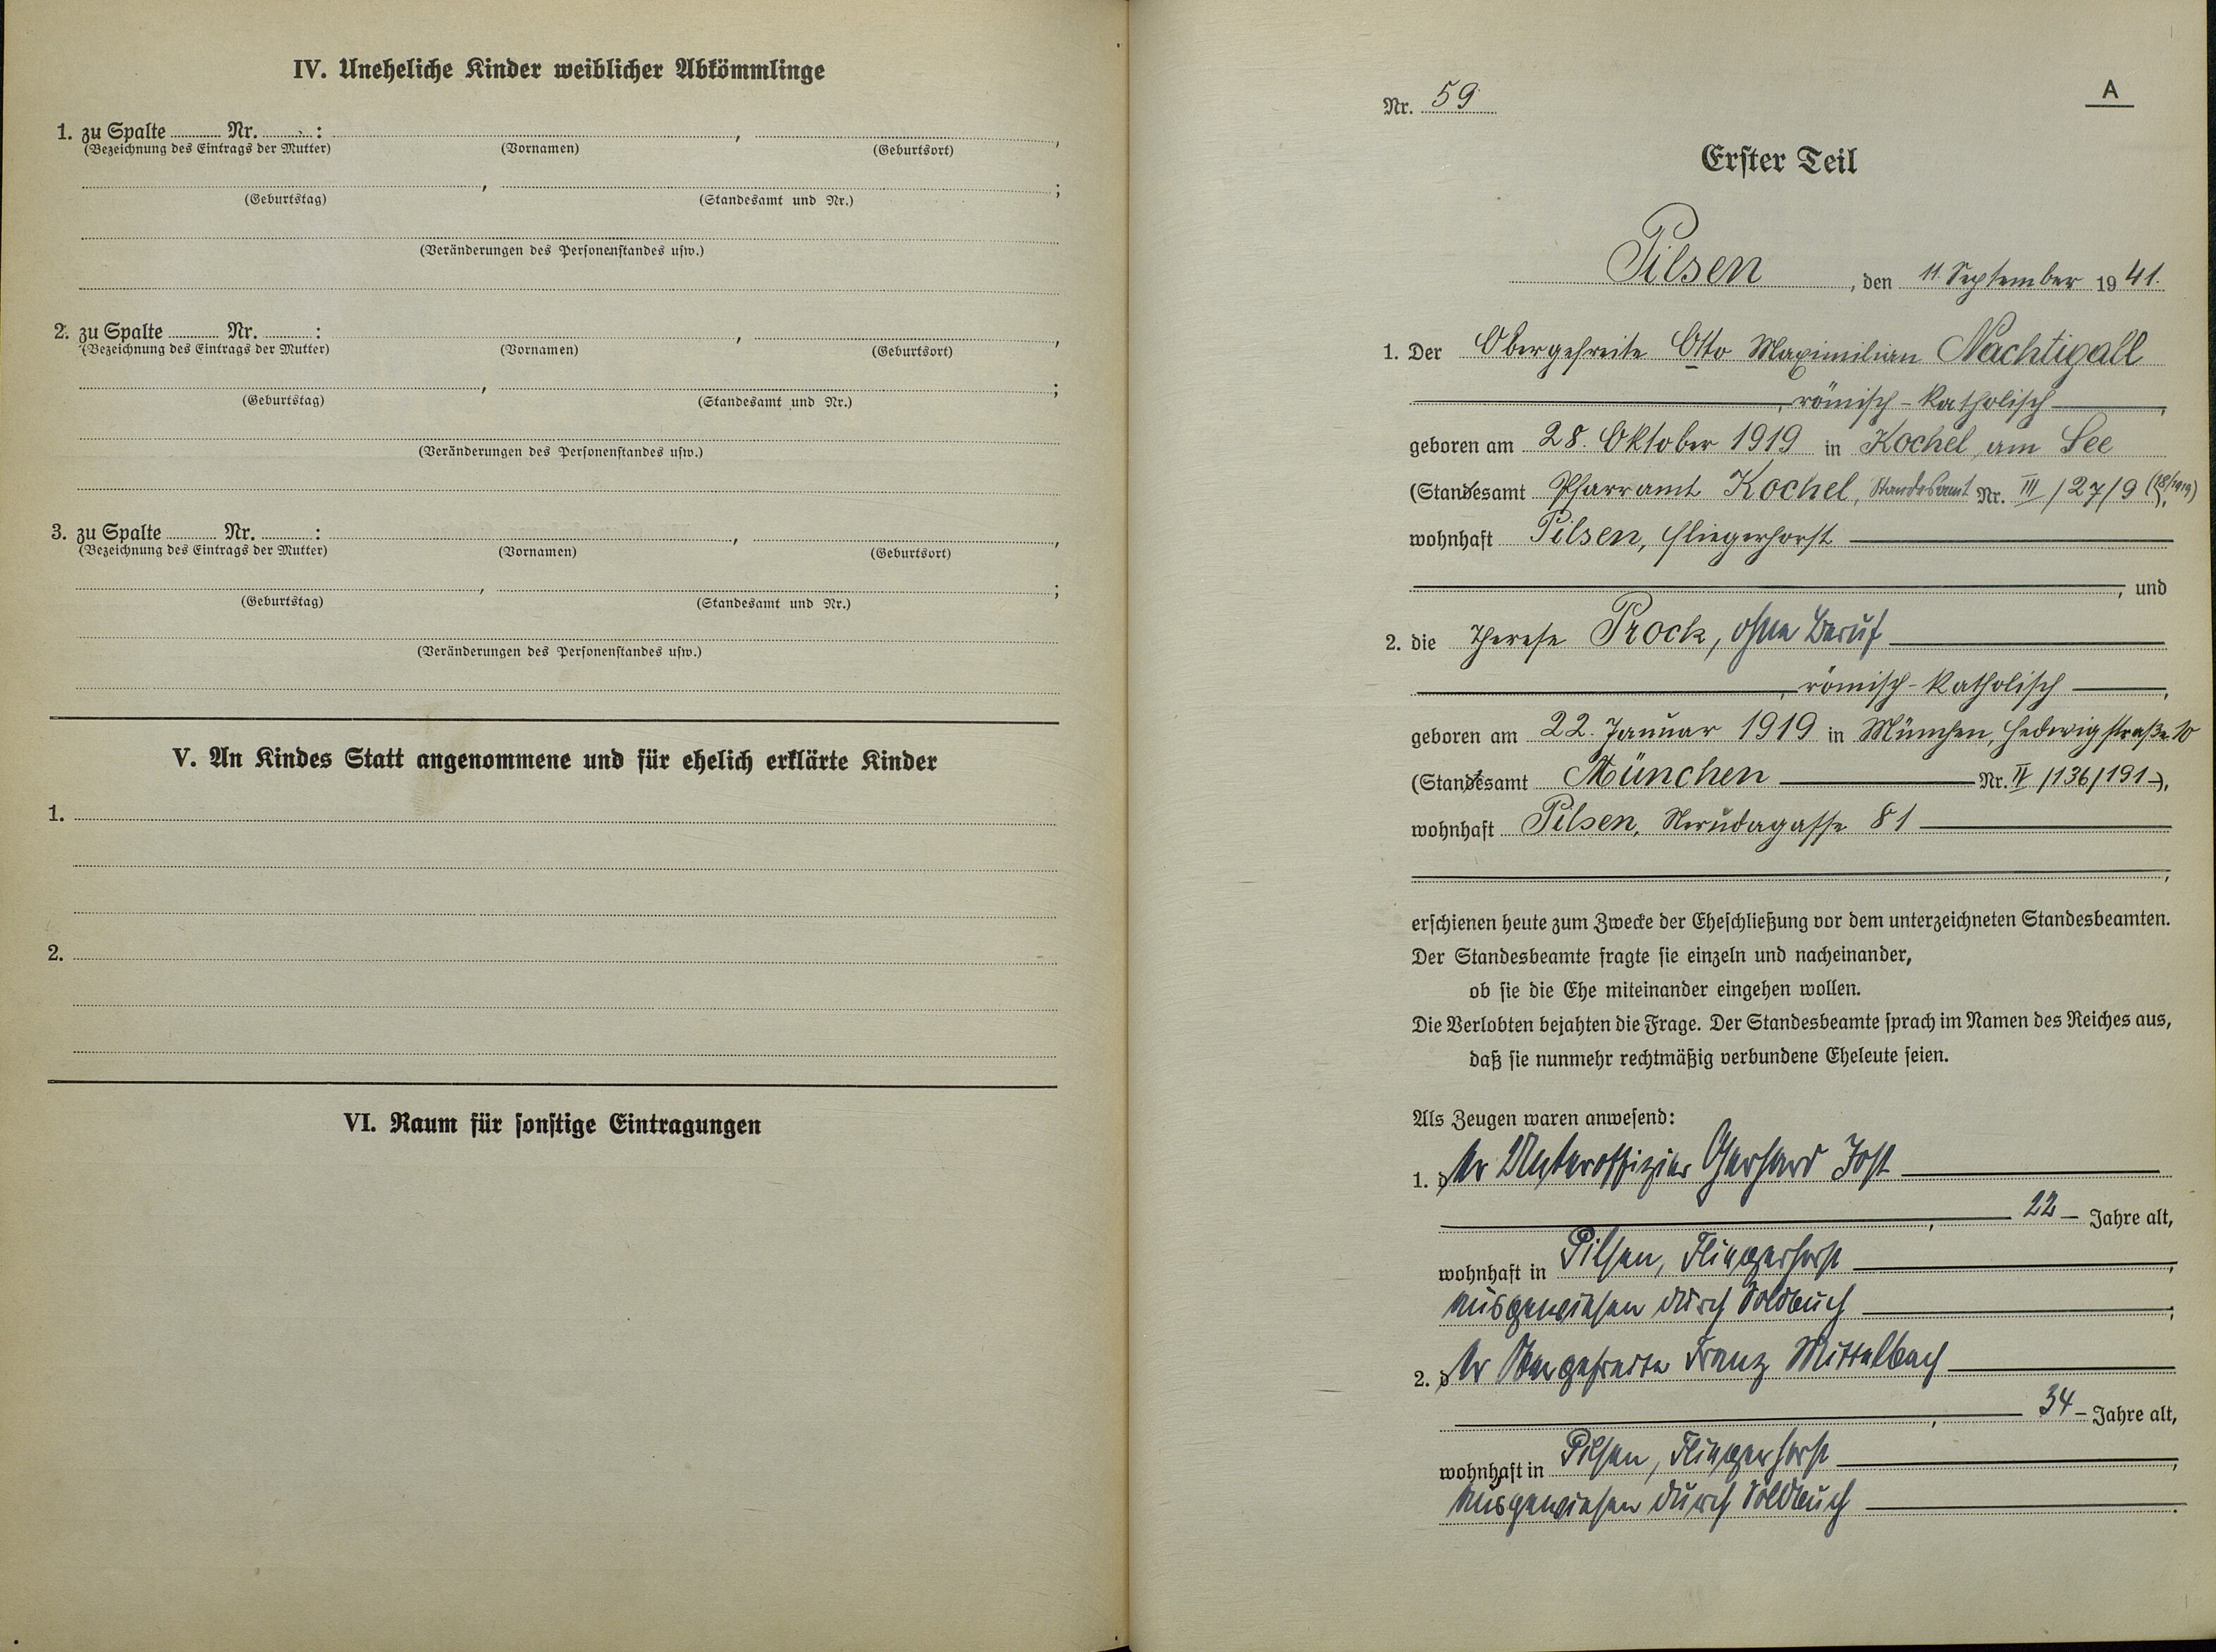 IV. Uneheliche Kinder weiblicher Abkömmlinge
1. zu Spalte ........ Nr. ........ : ........, ........,
(Bezeichnung des Eintrags der Mutter) (Vornamen) (Geburtsort)
........, ........;
(Geburtstag) (Standesamt und Nr.)
(Veränderungen des Personenstandes usw.)
2. zu Spalte ........ Nr. ........ : ........, ........,
(Bezeichnung des Eintrags der Mutter) (Vornamen) (Geburtsort)
........, ........;
(Geburtstag) (Standesamt und Nr.)
(Veränderungen des Personenstandes usw.)
3. zu Spalte ........ Nr. ........ : ........, ........,
(Bezeichnung des Eintrags der Mutter) (Vornamen) (Geburtsort)
........, ........;
(Geburtstag) (Standesamt und Nr.)
(Veränderungen des Personenstandes usw.)
V. An Kindes Statt angenommene und für ehelich erklärte Kinder
1.
2.
VI. Raum für sonstige Eintragungen
A
Nr. 59
Erster Teil
Pilsen, den 11. September 1941.
1. Der Obergefreite Otto Maximilian Nachtigall
, römisch-katholisch,
geboren am 28. Oktober 1919 in Kochel am See
(Standesamt Pfarramt Kochel, Standesamt Nr. III/27/9 (18/1919)),
wohnhaft Pilsen, Fliegerhorst
, und
2. die Therese Prock, ohne Beruf
, römisch-katholisch,
geboren am 22. Januar 1919 in München, Hedwigstraße 10
(Standesamt München Nr. IV/136/191),
wohnhaft Pilsen, Nerudagasse 81
,
erschienen heute zum Zwecke der Eheschließung vor dem unterzeichneten Standesbeamten.
Der Standesbeamte fragte sie einzeln und nacheinander,
ob sie die Ehe miteinander eingehen wollen.
Die Verlobten bejahten die Frage. Der Standesbeamte sprach im Namen des Reiches aus,
daß sie nunmehr rechtmäßig verbundene Eheleute seien.
Als Zeugen waren anwesend:
1. der Unteroffizier Gerhard Jost
, 22 Jahre alt,
wohnhaft in Pilsen, Fliegerhorst,
ausgewiesen durch Soldbuch;
2. der Obergefreite Franz Mittelbach
, 34 Jahre alt,
wohnhaft in Pilsen, Fliegerhorst,
ausgewiesen durch Soldbuch.